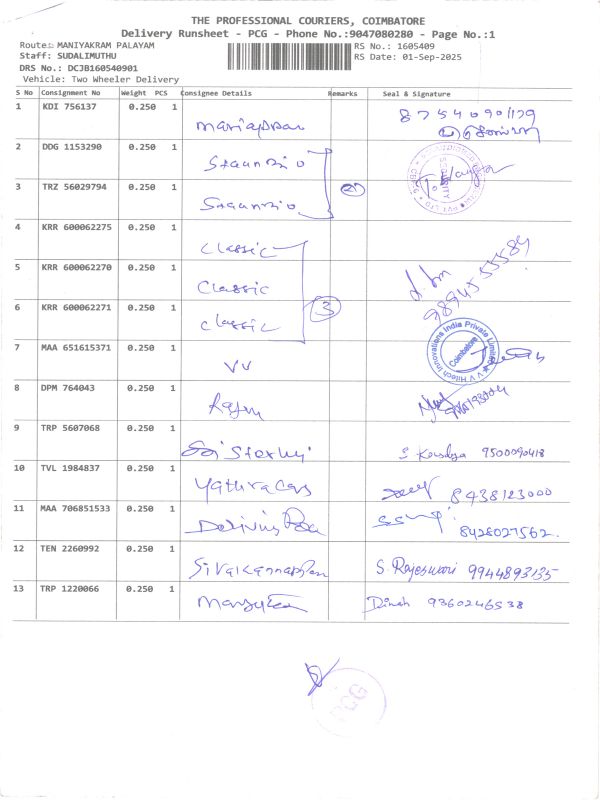 THE PROFESSIONAL COURIERS, COIMBATORE
Delivery Runsheet - PCG - Phone No.:9047080280 - Page No.:1
Route: MANIYAKRAM PALAYAM RS No.: 1605409
Staff: SUDALIMUTHU RS Date: 01-Sep-2025
DRS No.: DCJB160540901
Vehicle: Two Wheeler Delivery
S No Consignment No Weight PCS Consignee Details Remarks Seal & Signature
1 KDI 756137 0.250 1 mariappan
2 DDG 1153290 0.250 1
3 TRZ 56029794 0.250 1
4 KRR 600062275 0.250 1 classic
5 KRR 600062270 0.250 1 classic
6 KRR 600062271 0.250 1 classic 3
7 MAA 651615371 0.250 1 VV V V Hitech Innovations India Private Limited Coimbatore
8 DPM 764043 0.250 1
9 TRP 5607068 0.250 1 Sai 9500090418
10 TVL 1984837 0.250 1 Yathra Cars 8438123000
11 MAA 706851533 0.250 1 8428027562.
12 TEN 2260992 0.250 1 S. Rajeswari 9944893135
13 TRP 1220066 0.250 1 9360246538
PCG